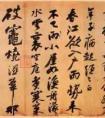 春江欲入戶雨勢來
不已小屋如漁舟濛濛
水雲裏空庖煮寒菜
破竈燒濕葦那